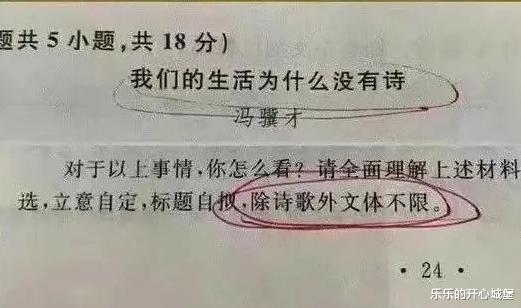 题共 5 小题,共 18 分)
我们的生活为什么没有诗
冯骥才
对于以上事情,你怎么看?请全面理解上述材料
选,立意自定,标题自拟,除诗歌外文体不限。
· 24 ·
乐乐的开心城堡